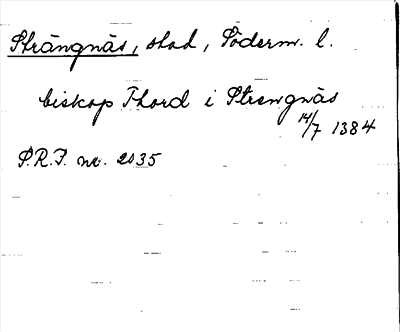 Strängnäs, stad, Söderm. l.
biskop Thord i Strengnäs
14/7 1384
P.R.P. nr. 2035